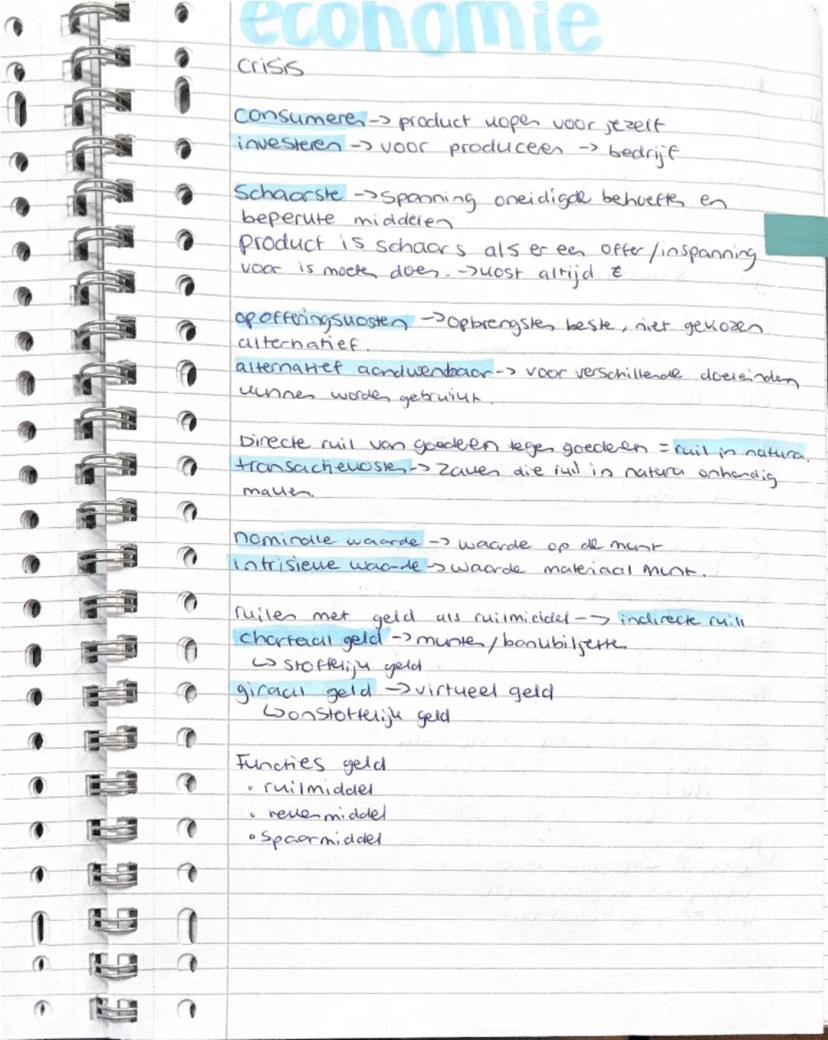 economie
crisis
consumeren -> product kopen voor jezelf
investeren -> voor produceren -> bedrijf
Schaarste -> Spanning oneidigde behoeften en
beperkte middelen
product is schaars als er een offer/inspanning
voor is moeten doen. -> kost altijd €
opofferingskosten -> opbrengsten beste, niet gekozen
alternatief.
alternatief aandwenbaar -> voor verschillende doeleinden
kunnen worden gebruikt.
Directe ruil van goederen tegen goederen = ruil in natura.
transactiekosten -> Zaken die ruil in natura onhandig
maken.
nominale waarde -> waarde op de munt
intrisieke waarde -> waarde materiaal munt.
ruilen met geld als ruilmiddel -> indirecte ruil
chartaal geld -> munten/bankbiljetten
↳ stoffelijk geld
giraal geld -> virtueel geld
↳ onstoffelijk geld
Functies geld
• ruilmiddel
• rekenmiddel
• Spaarmiddel